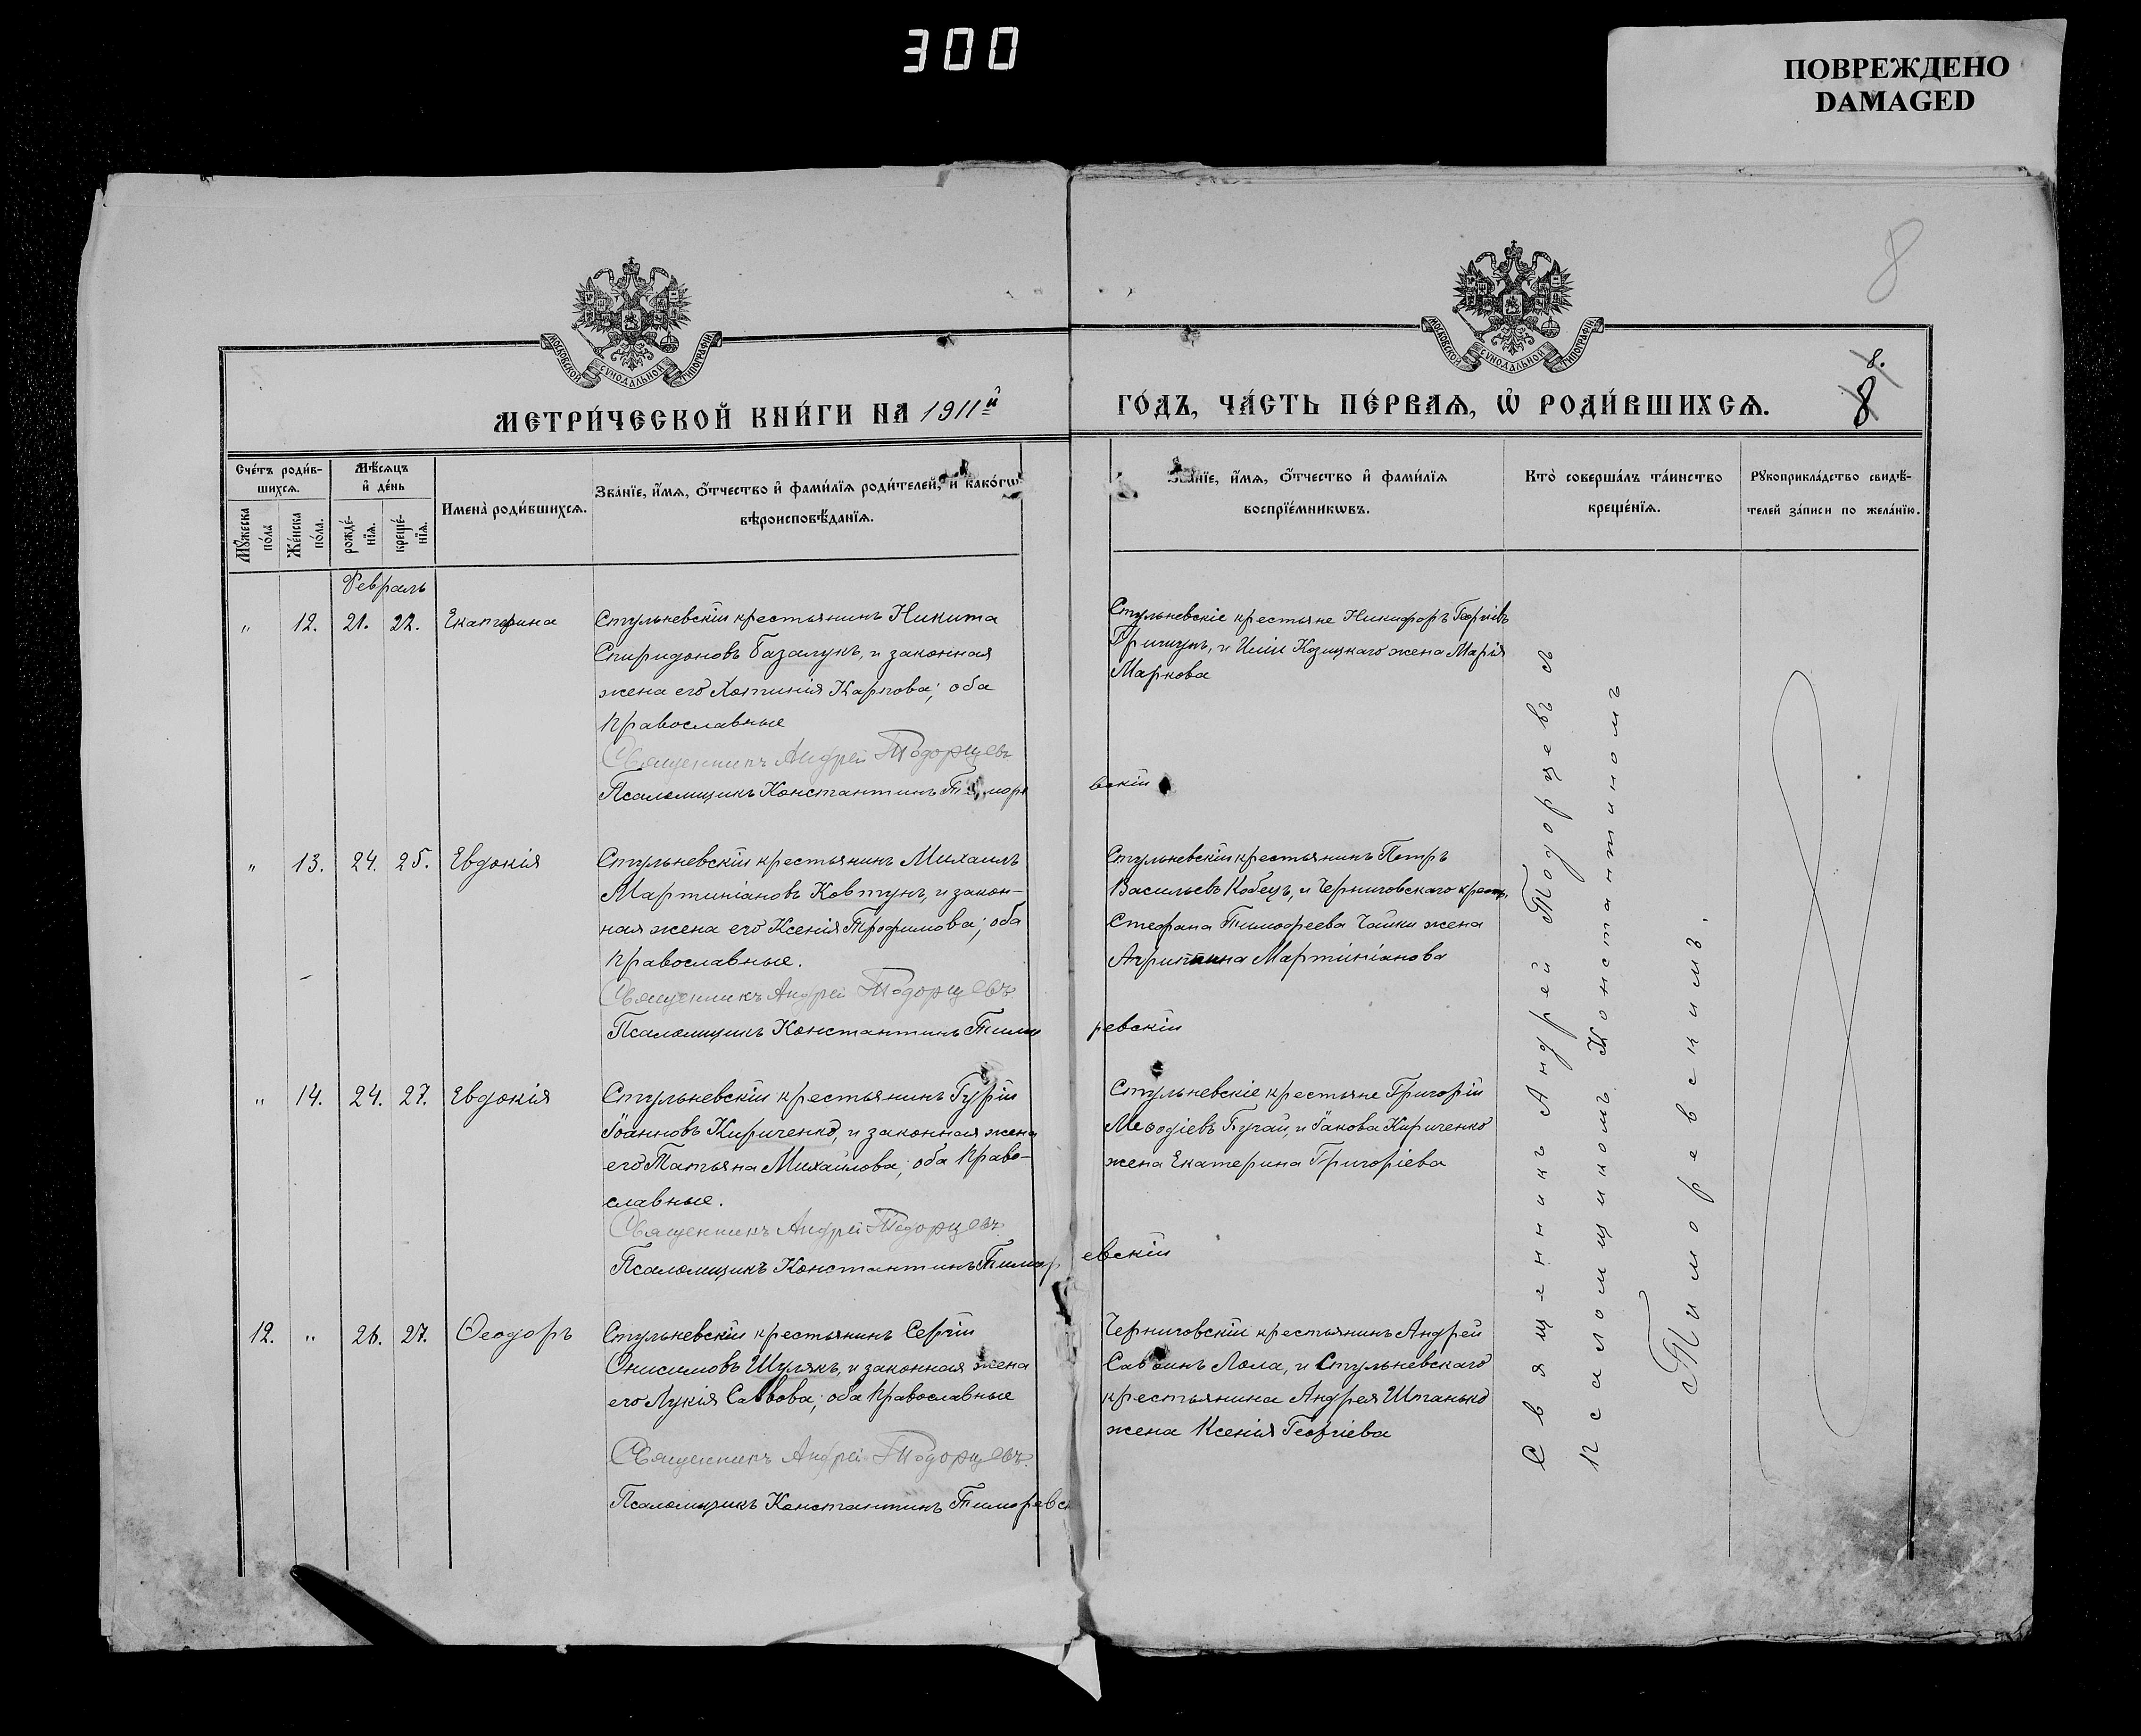 300
ПОВРЕЖДЕНО
DAMAGED
8
МОСКОВСКОЙ СУНОДАЛЬНОЙ ТИПОГРАФІИ
МОСКОВСКОЙ СУНОДАЛЬНОЙ ТИПОГРАФІИ
8.
8
МЕТРИ́ЧЕСКОЙ КНИ́ГИ НА 1911й
ГО́ДЪ, ЧА́СТЬ ПЕ́РВАѦ, Ѡ РОДИ́ВШИХСѦ.
Сче́тъ роди́в-
шихсѧ.
Мꙋ́жеска
по́ла
Же́нска
по́ла.
Мѣ́сѧцъ
и҆ де́нь
рожде́-
нїѧ.
креще́-
нїѧ.
И҆мена̀ роди́вшихсѧ.
Зва́нїе, и҆́мѧ, ѻ҆́тчество и҆ фами́лїѧ роди́телей, и҆ како́гѡ
вѣроисповѣ́данїѧ.
Зва́нїе, и҆́мѧ, ѻ҆́тчество и҆ фами́лїѧ
воспрїе́мникѡвъ.
Кто̀ соверша́лъ та́инство
креще́нїѧ.
Рꙋкоприкла́дство свидѣ́-
телей за́писи по жела́нїю.
Февраль
" 12. 21. 22. Екатерина
Стульневскій крестьянинъ Никита
Спиридоновъ Базалукъ, и законная
жена его Хотинія Карпова; оба
православные
Священникъ Андрей Тодорцевъ
Псаломщикъ Константинъ Тиморевскій
Стульневскіе крестьяне Никифоръ Георгіевъ
Гричунъ, и Иліи Козицкаго жена Марія
Маркова
" 13. 24. 25. Евдокія
Стульневскій крестьянинъ Михаилъ
Мартиніановъ Ковтунъ, и закон-
ная жена его Ксенія Трофимова; оба
православные.
Священникъ Андрей Тодорцевъ
Псаломщикъ Константинъ Тиморевскій
Стульневскій крестьянинъ Петръ
Васильевъ Кобецъ, и Черниговскаго крест.
Стефана Тимофеева Чайки жена
Агриппина Мартиніанова
" 14. 24. 27. Евдокія
Стульневскій крестьянинъ Гурій
Іоанновъ Кириченко, и законная жена
его Татьяна Михайлова; оба право-
славные.
Священникъ Андрей Тодорцевъ
Псаломщикъ Константинъ Тиморевскій
Стульневскіе крестьяне Григорій
Меѳодіевъ Бугай, и Іакова Кириченко
жена Екатерина Григоріева
12. " 26. 27. Ѳеодоръ
Стульневскій крестьянинъ Сергій
Онисимовъ Шулякъ, и законная жена
его Лукія Саввова; оба православные
Священникъ Андрей Тодорцевъ
Псаломщикъ Константинъ Тиморевск
Черниговскій крестьянинъ Андрей
Саввинъ Лола, и Стульневскаго
крестьянина Андрея Штанько
жена Ксенія Георгіева
Священникъ Андрей Тодорцевъ съ
псаломщикомъ Константиномъ
Тиморевскимъ.